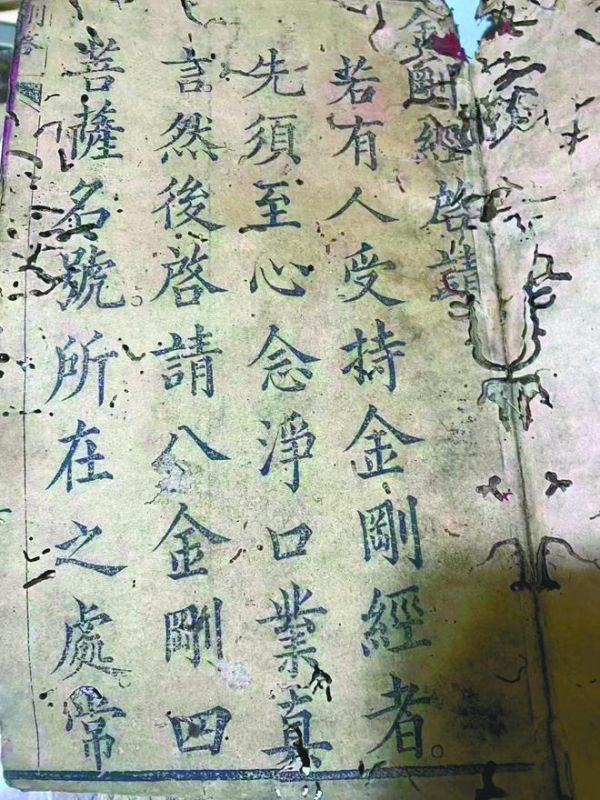 金剛經啓請
若有人受持金剛經者。
先須至心念淨口業真
言然後啓請八金剛四
菩薩名號。所在之處常